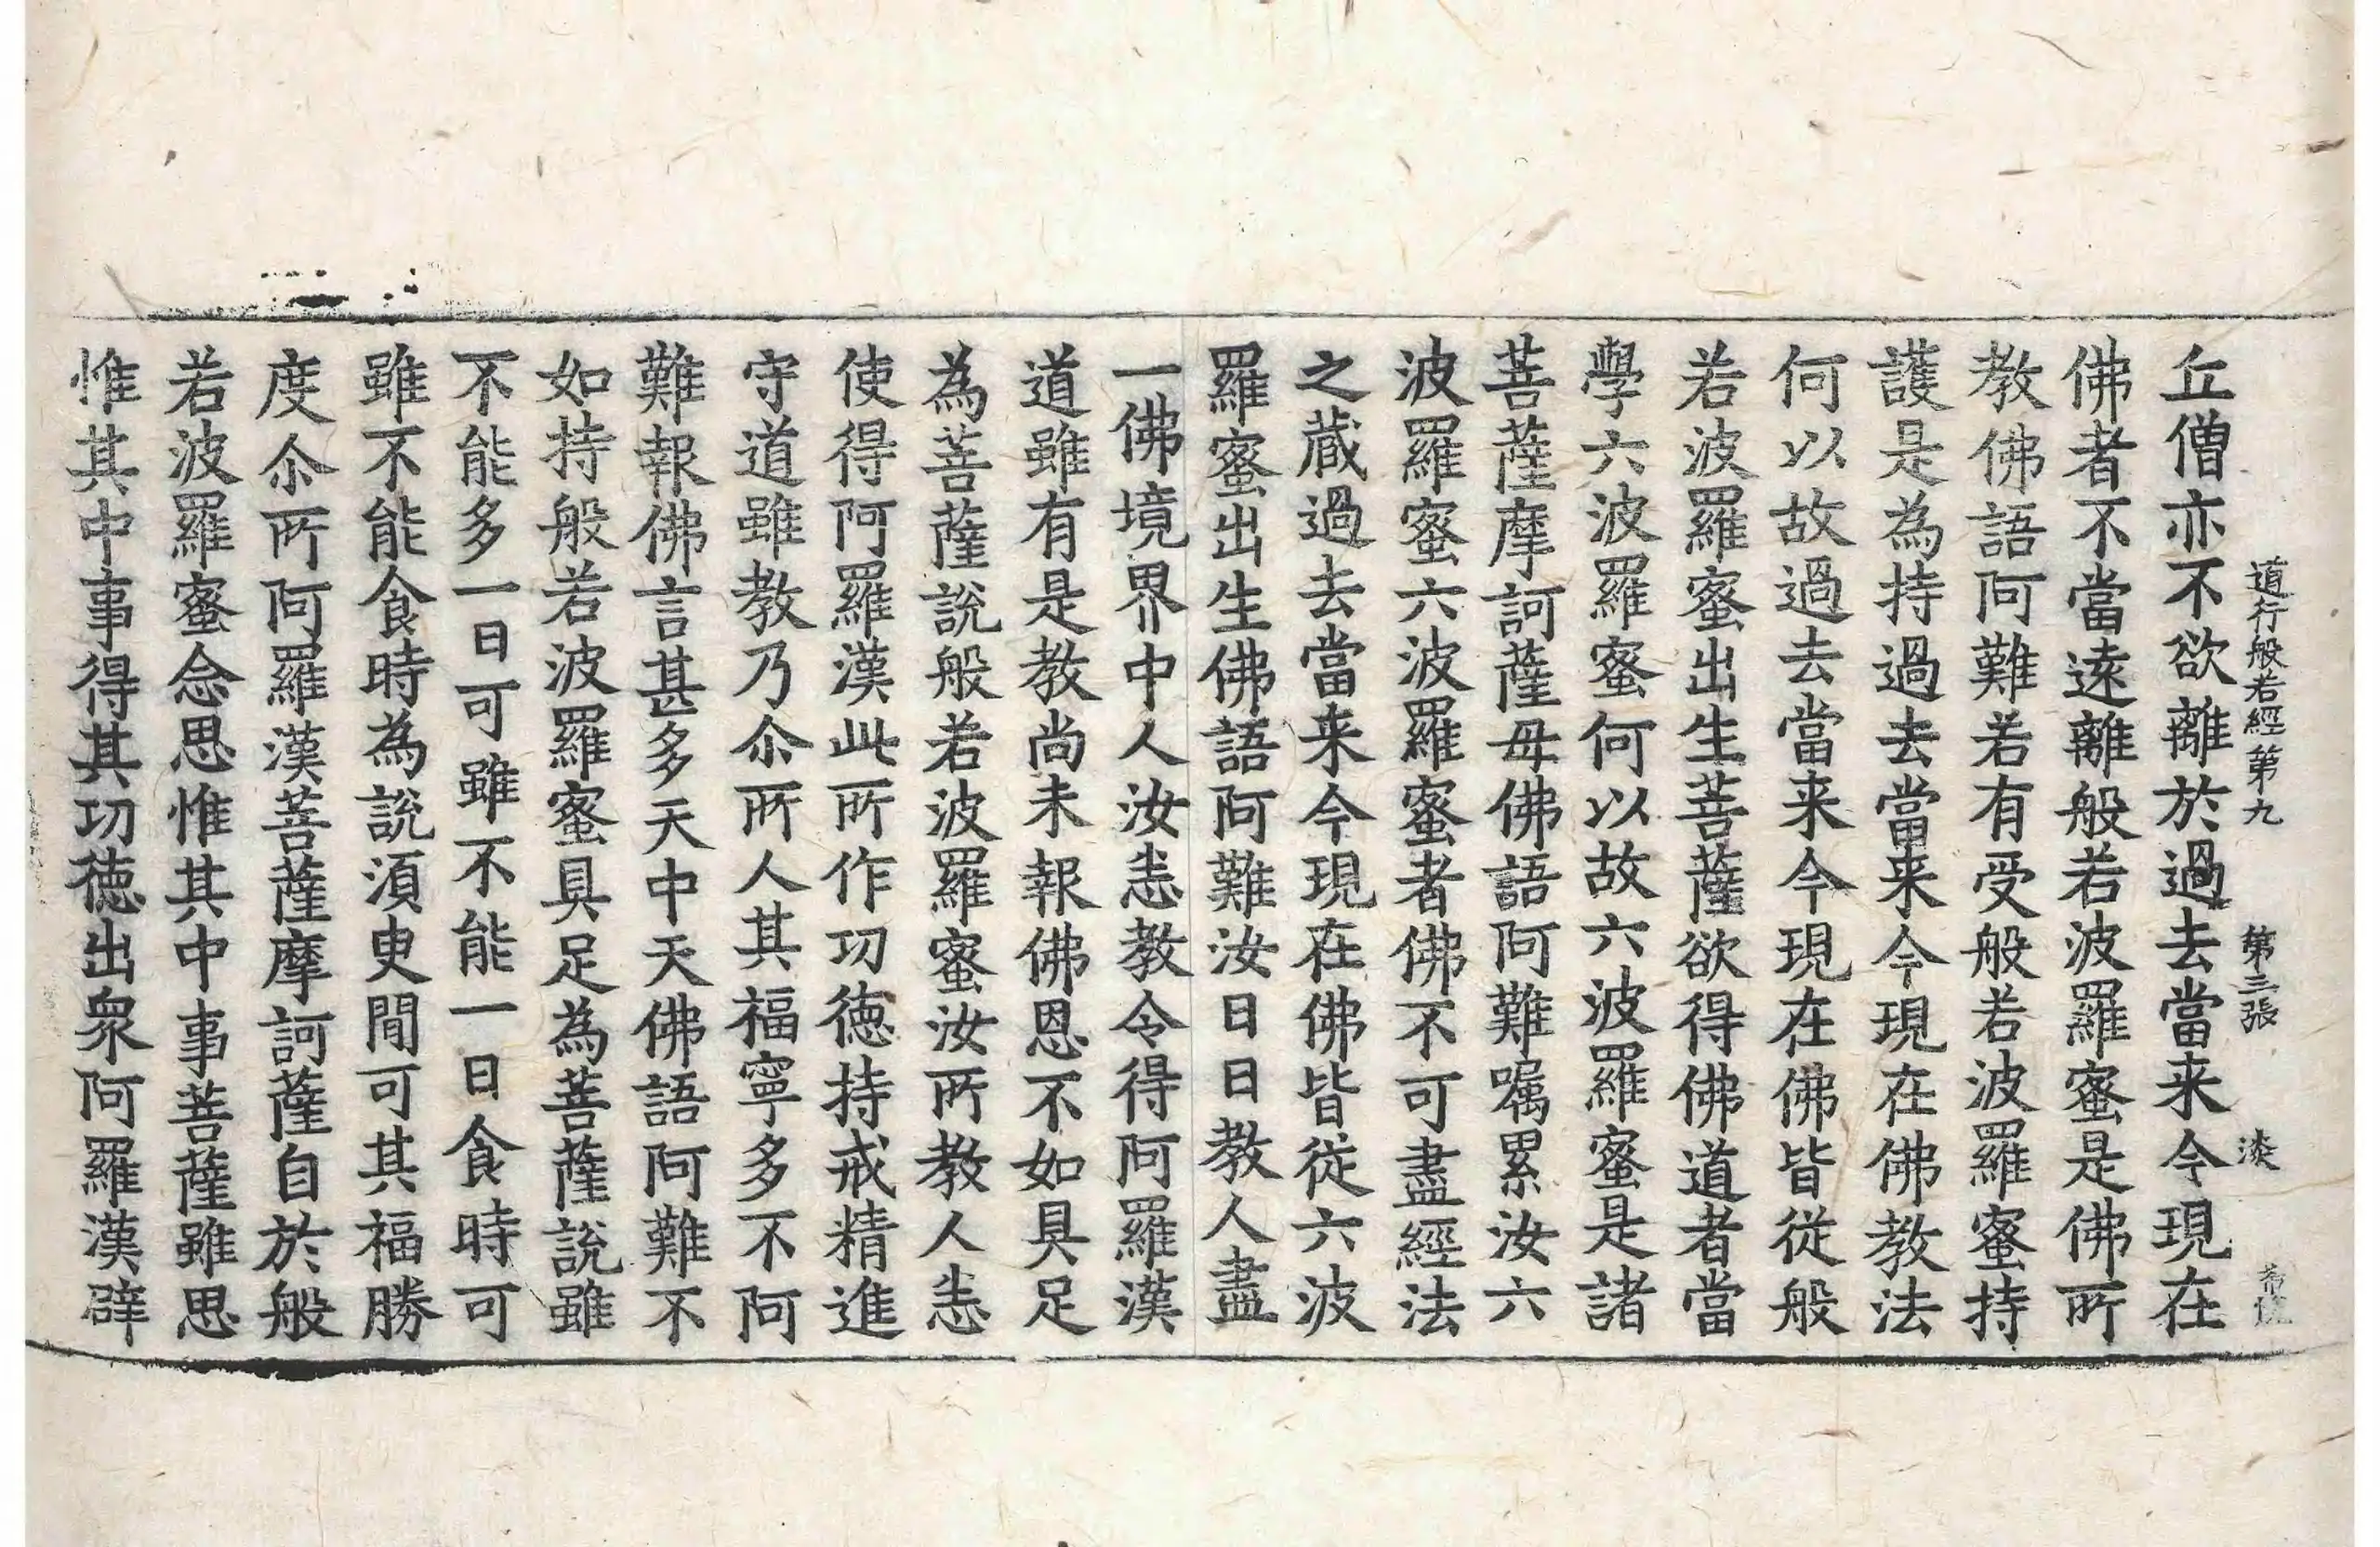 道行般若經第九　第三張　淡
丘僧亦不欲離於過去當来今現在
佛者不當遠離般若波羅蜜是佛所
教佛語阿難若有受般若波羅蜜持
護是為持過去當来今現在佛教法
何以故過去當来今現在佛皆從般
若波羅蜜出生菩薩欲得佛道者當
學六波羅蜜何以故六波羅蜜是諸
菩薩摩訶薩母佛語阿難嘱累汝六
波羅蜜六波羅蜜者佛不可盡經法
之蔵過去當来今現在佛皆從六波
羅蜜出生佛語阿難汝日日教人盡
一佛境界中人汝恚教令得阿羅漢
道雖有是教尚未報佛恩不如具足
為菩薩說般若波羅蜜汝所教人恚
使得阿羅漢此所作功德持戒精進
守道雖教乃尒所人其福寧多不阿
難報佛言甚多天中天佛語阿難不
如持般若波羅蜜具足為菩薩說雖
不能多一日可雖不能一日食時可
雖不能食時為說湏臾間可其福勝
度尒所阿羅漢菩薩摩訶薩自於般
若波羅蜜念思惟其中事菩薩雖思
惟其中事得其功德出衆阿羅漢辟